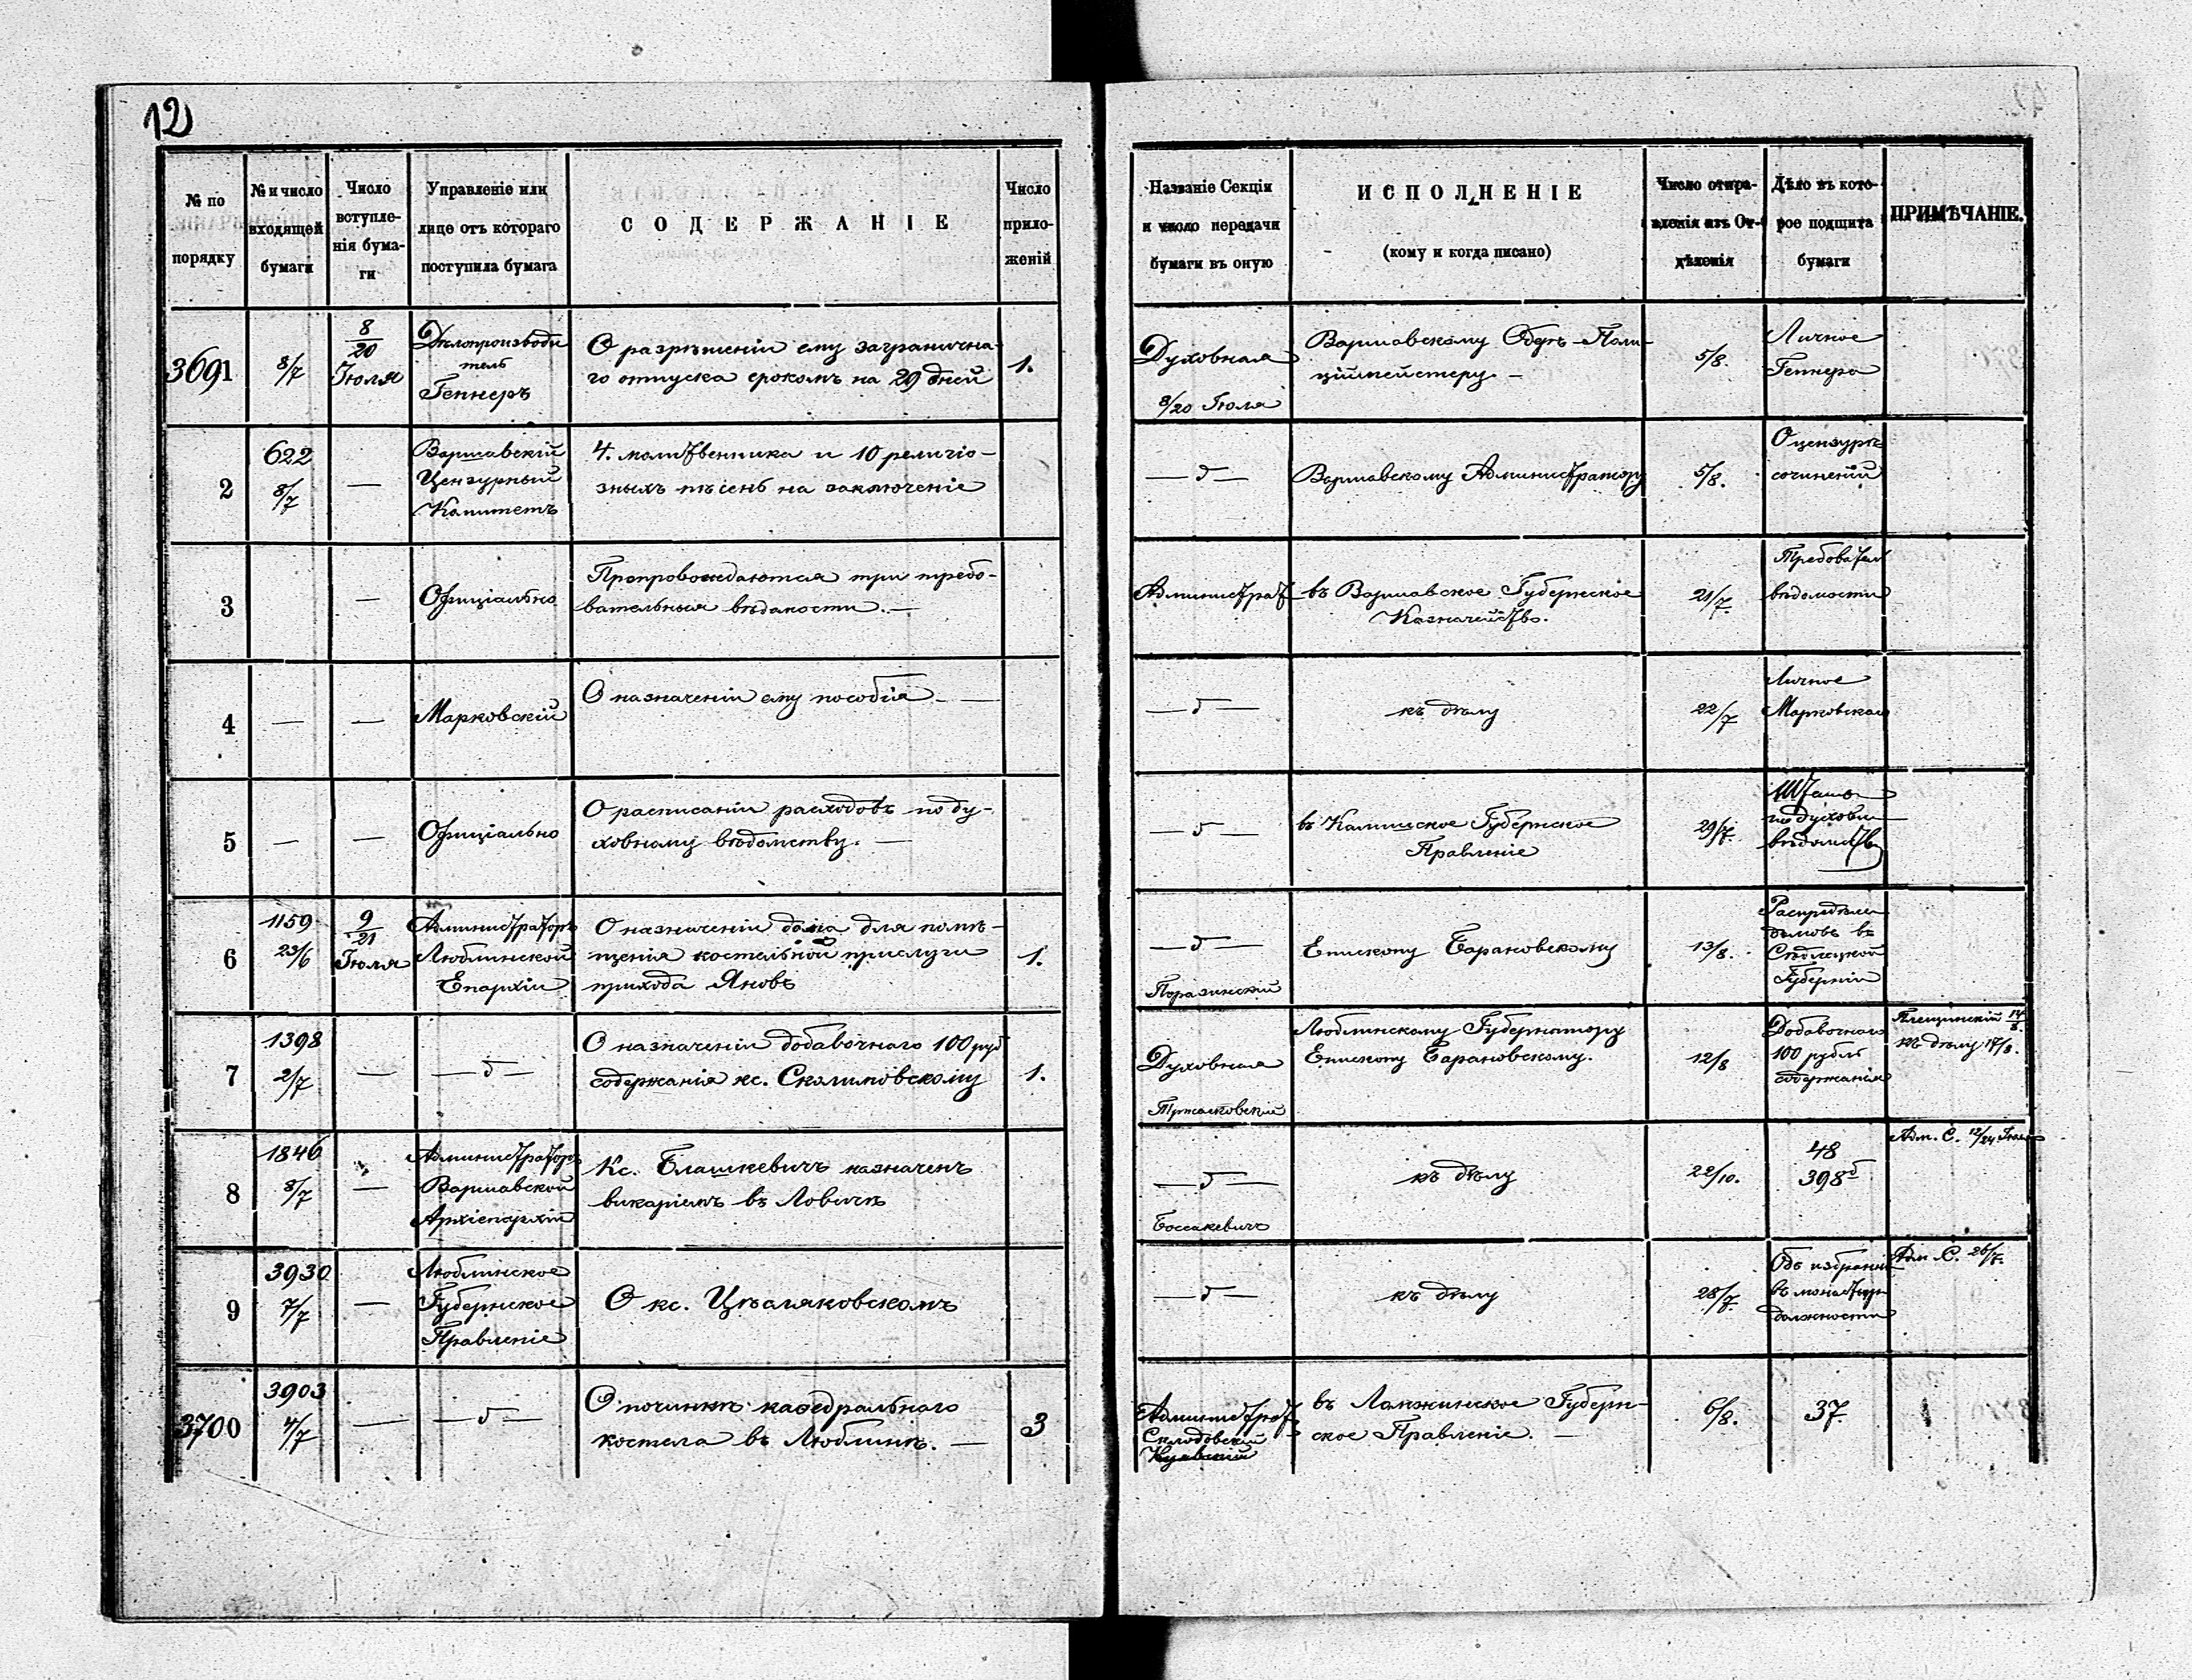 12
№ по
порядку
№ и число
входящей
бумаги
Число
вступле-
нія бума-
ги
Управленіе или
лице отъ котораго
поступила бумага
СОДЕРЖАНІЕ
Число
прило-
женій
Названіе Секціи
и число передачи
бумаги въ оную
ИСПОЛНЕНІЕ
(кому и когда писано)
Число отпра-
вленія изъ От-
дѣленія
Дѣло въ кото-
рое подшита
бумаги
ПРИМѢЧАНІЕ.
3691
8/7
8/20
Іюля
Дѣлопроизводи
тель
Гепперъ
О разрѣшеніи ему загранична-
го отпуска срокомъ на 29 дней
1.
Духовная
8/20 Іюля
Варшавскому Оберъ-Поли-
ціймейстеру. —
5/8.
Личное
Геппера
2
622
8/7
—
Варшавскій
Цензурный
Комитетъ
4. молитвенника и 10 религіо-
зныхъ пѣсень на заключеніе
— д —
Варшавскому Администратору
5/8.
О цензурѣ
сочиненій
3
—
Офиціально
Препровождаются три требо-
вательныя вѣдомости. —
Администрат
въ Варшавское Губернское
Казначейство.
21/7.
Требовател
вѣдомости
4
—
—
Марковскій
О назначеніи ему пособія — —
— д —
къ дѣлу
22/7
Личное
Марковскаго
5
—
—
Офиціально
О расписаніи расходовъ по ду-
ховному вѣдомству. —
— д —
въ Калишское Губернское
Правленіе
29/7.
по духовн
вѣдомству
6
1159
23/6
9/21
Іюля
Администраторъ
Люблинской
Епархіи
О назначеніи дома для помѣ-
щенія костельной прислуги
прихода Яновъ
1.
— д —
Епископу Барановскому
13/8.
Распредѣлен
домовъ въ
Сѣдлецкой
Губерніи
7
1398
2/7
—
— д —
О назначеніи добавочнаго 100 руб
содержанія кс. Сколимовскому
1.
Духовная
Люблинскому Губернатору
Епископу Барановскому.
12/8
Добавочнаго
100 рубль
содержанія
14/8
къ дѣлу 17/8.
8
1846
8/7
—
Администраторъ
Варшавской
Архіепархіи
Кс. Блашкевичъ назначенъ
викаріемъ въ Ловичъ
— д —
къ дѣлу
22/10.
48
398б
Адм. С. 12/24 Іюля
9
3930
7/7
—
Люблинское
Губернское
Правленіе
О кс.
— д —
къ дѣлу
28/7
Объ избраніи
въ монастыр
должности
Адм. С. 26/7.
3700
3903
4/7
—
— д —
О починкѣ каѳедральнаго
костела въ Люблинѣ. —
3
Администрат
Склодовскій
въ Ломжинское Губерн-
ское Правленіе. —
6/8.
37